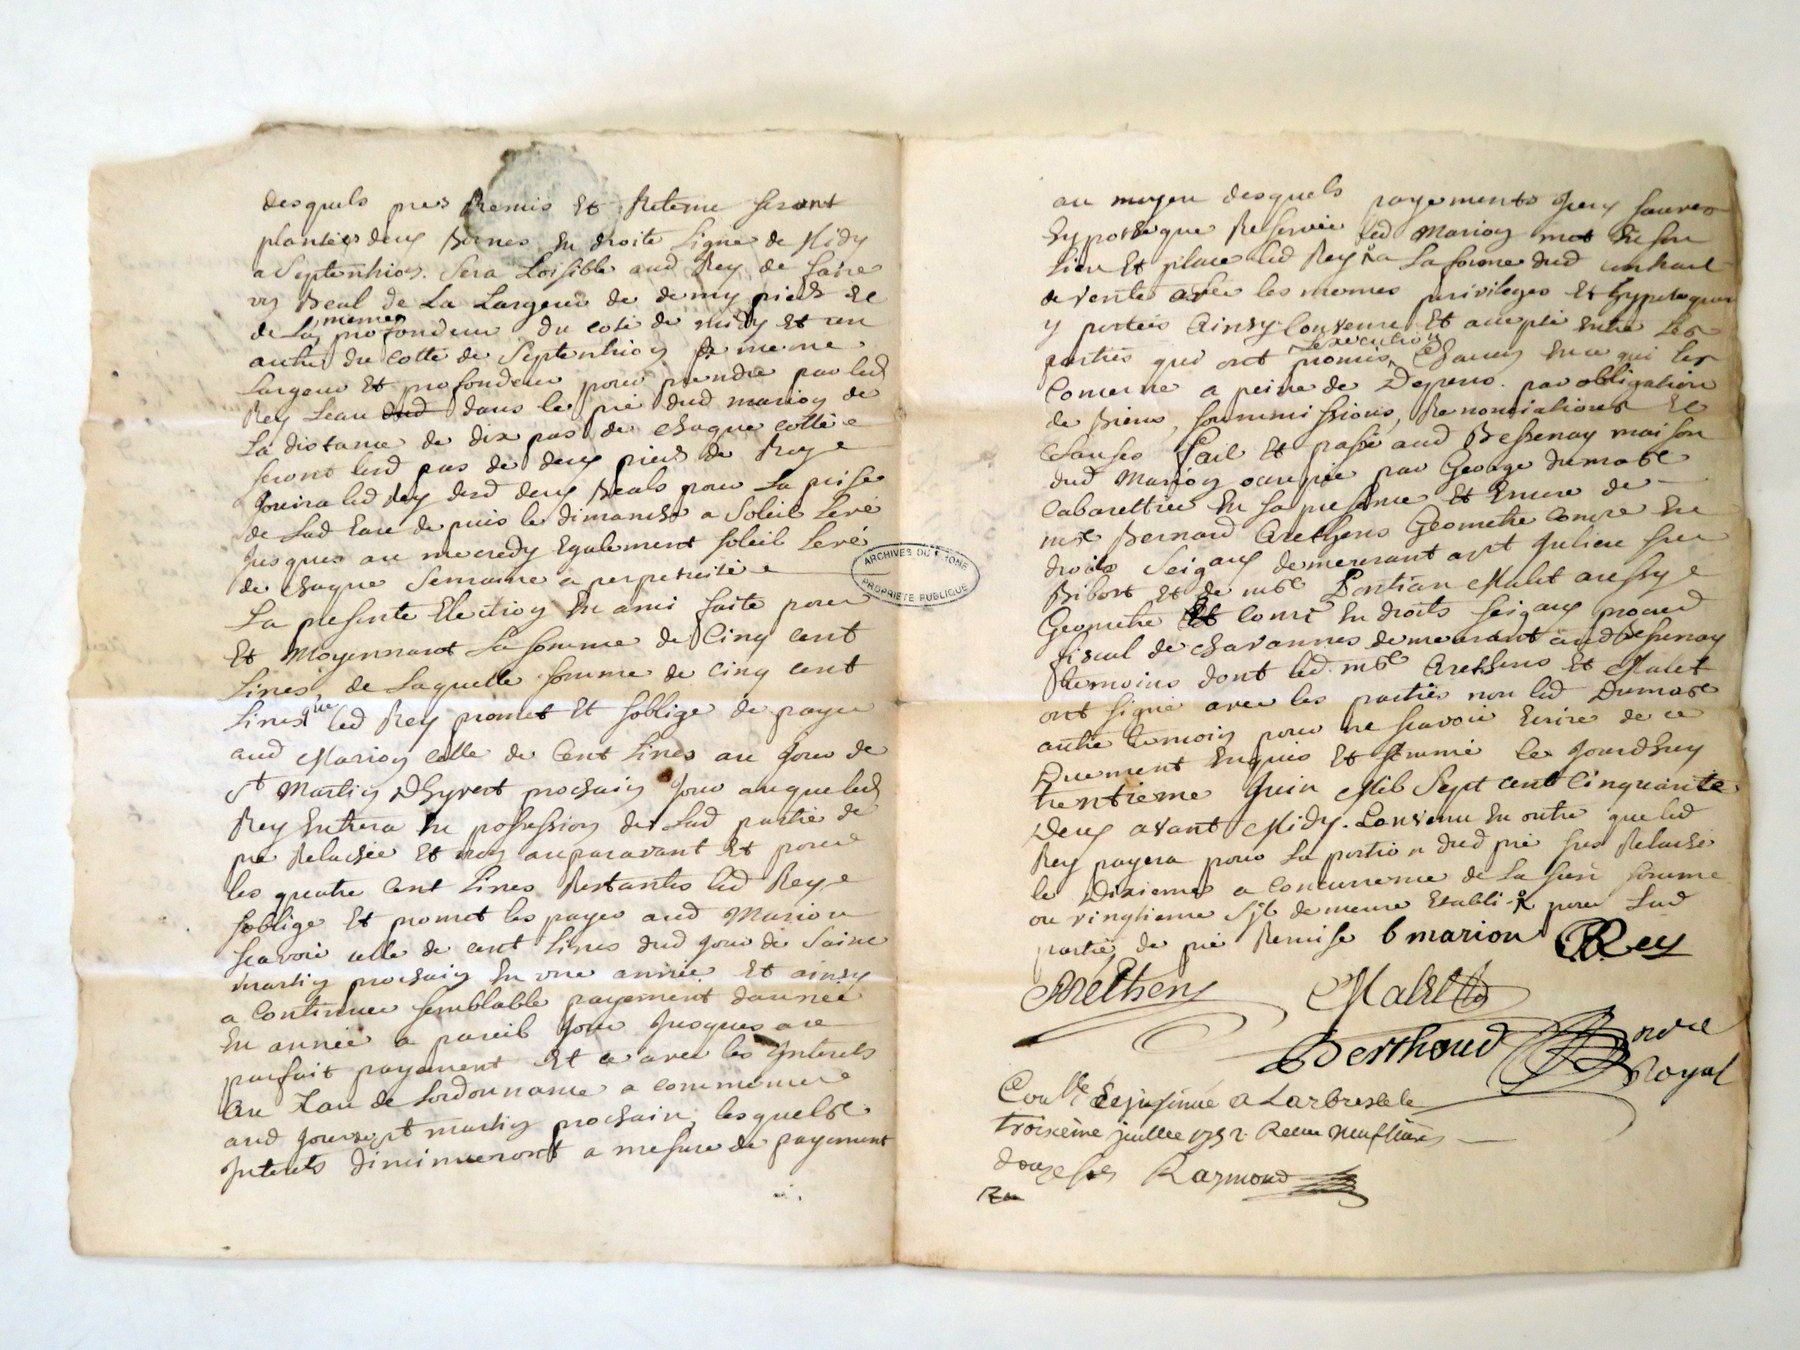 desquels prés Remis Et Retenu seront
plantées deux Bornes En droite Ligne de Midy
a Septentrion. Sera Loisible aud Rey de faire
un Beal de La Largeur de demy pied et
de La memes profondeur du coté de Midy Et un
autre du cotté de Septentrion de meme
Largeur Et profondeur pour prendre par led
Rey Leau dud dans le pré dud marion de
La distance de dix pas de chaque cotté
seront lesd pas de deux pieds de Roy
Jouira led Rey desd deux Beals pour La prise
de Lad Eau de puis le dimanche a Soleil Levé
Jusques au mecredy Egalement soleil Levé
de chaque Semaine a perpetuité
La presente Election En ami faite pour
Et Moyennant La somme de Cinq cent
Livres de Laquelle somme de cinq cent
Livres que led Rey promet Et soblige de payer
aud Marion celle de Cent Livres au Jour de
St Martin Dhyvert prochain Jour auquel led
Rey Entrera En possession de Lad partie de
pré Relachée Et non auparavant Et pour
les quatre Cent Livres Restantes led Rey
soblige Et promet les payer aud Marion
scavoir celle de cent Livres dud Jour de Saint
martin prochain En une année Et ainsy
a Continuer semblable payement dannée
En année a pareil Jour Jusques au
parfait payement Et a avec les Interets
au taux de Lordonnance a commencer
aud Jour st martin prochain, lesquels
Interets diminueront a mesure de payement
au moyen desquels payements
hypotheque Reservée led Marion met En son
Lieu Et place led Rey a La forme dud contract
de vente avec les memes privileges Et hypoteques
y portées Ainsy Convenu Et accepté Entre Les
parties qui ont promis Lexecution Chacun En ce qui les
Concerne a peine de Depens. par obligation
de Biens, soummissions, Renonciations Et
Clauses Fait Et passé aud Bessenay maison
dud Marion occupée par George dumas
Cabarettier En sa presence Et Encore de
me Bernard Arethens Geometre Comre En
droits Seigaux demeurant a st Julien sur
Bibost Et de me Pontian Malet aussy
Geometre Et comre En droits seigaux procur
fiscal de chavannes demeurant aud Bessenay
temoins dont led me Arethens Et Malet
ont signé avec les parties non led Dumas
autre temoin pour ne scavoir Ecrire de ce
Duement Enquis Et sommé le Jourdhuy
trentieme Juin Mil Sept cent Cinquante
Deux avant Midy. Convenu En outre que led
Rey payera pour La portion dud pré sus Relaché
le Dixieme a Concurrence de La sus somme
ou vingtieme sil demeure Etabli pour Lad
partie de pré Remise b marion Rey
Arethens Malet
Berthaud Nore
Royal
Coullé Et insinué A Larbresle le
troisième juillet 1752. Receu neuf livres
douze sols Raymond
ARCHIVES DU RHONE
PROPRIETE PUBLIQUE